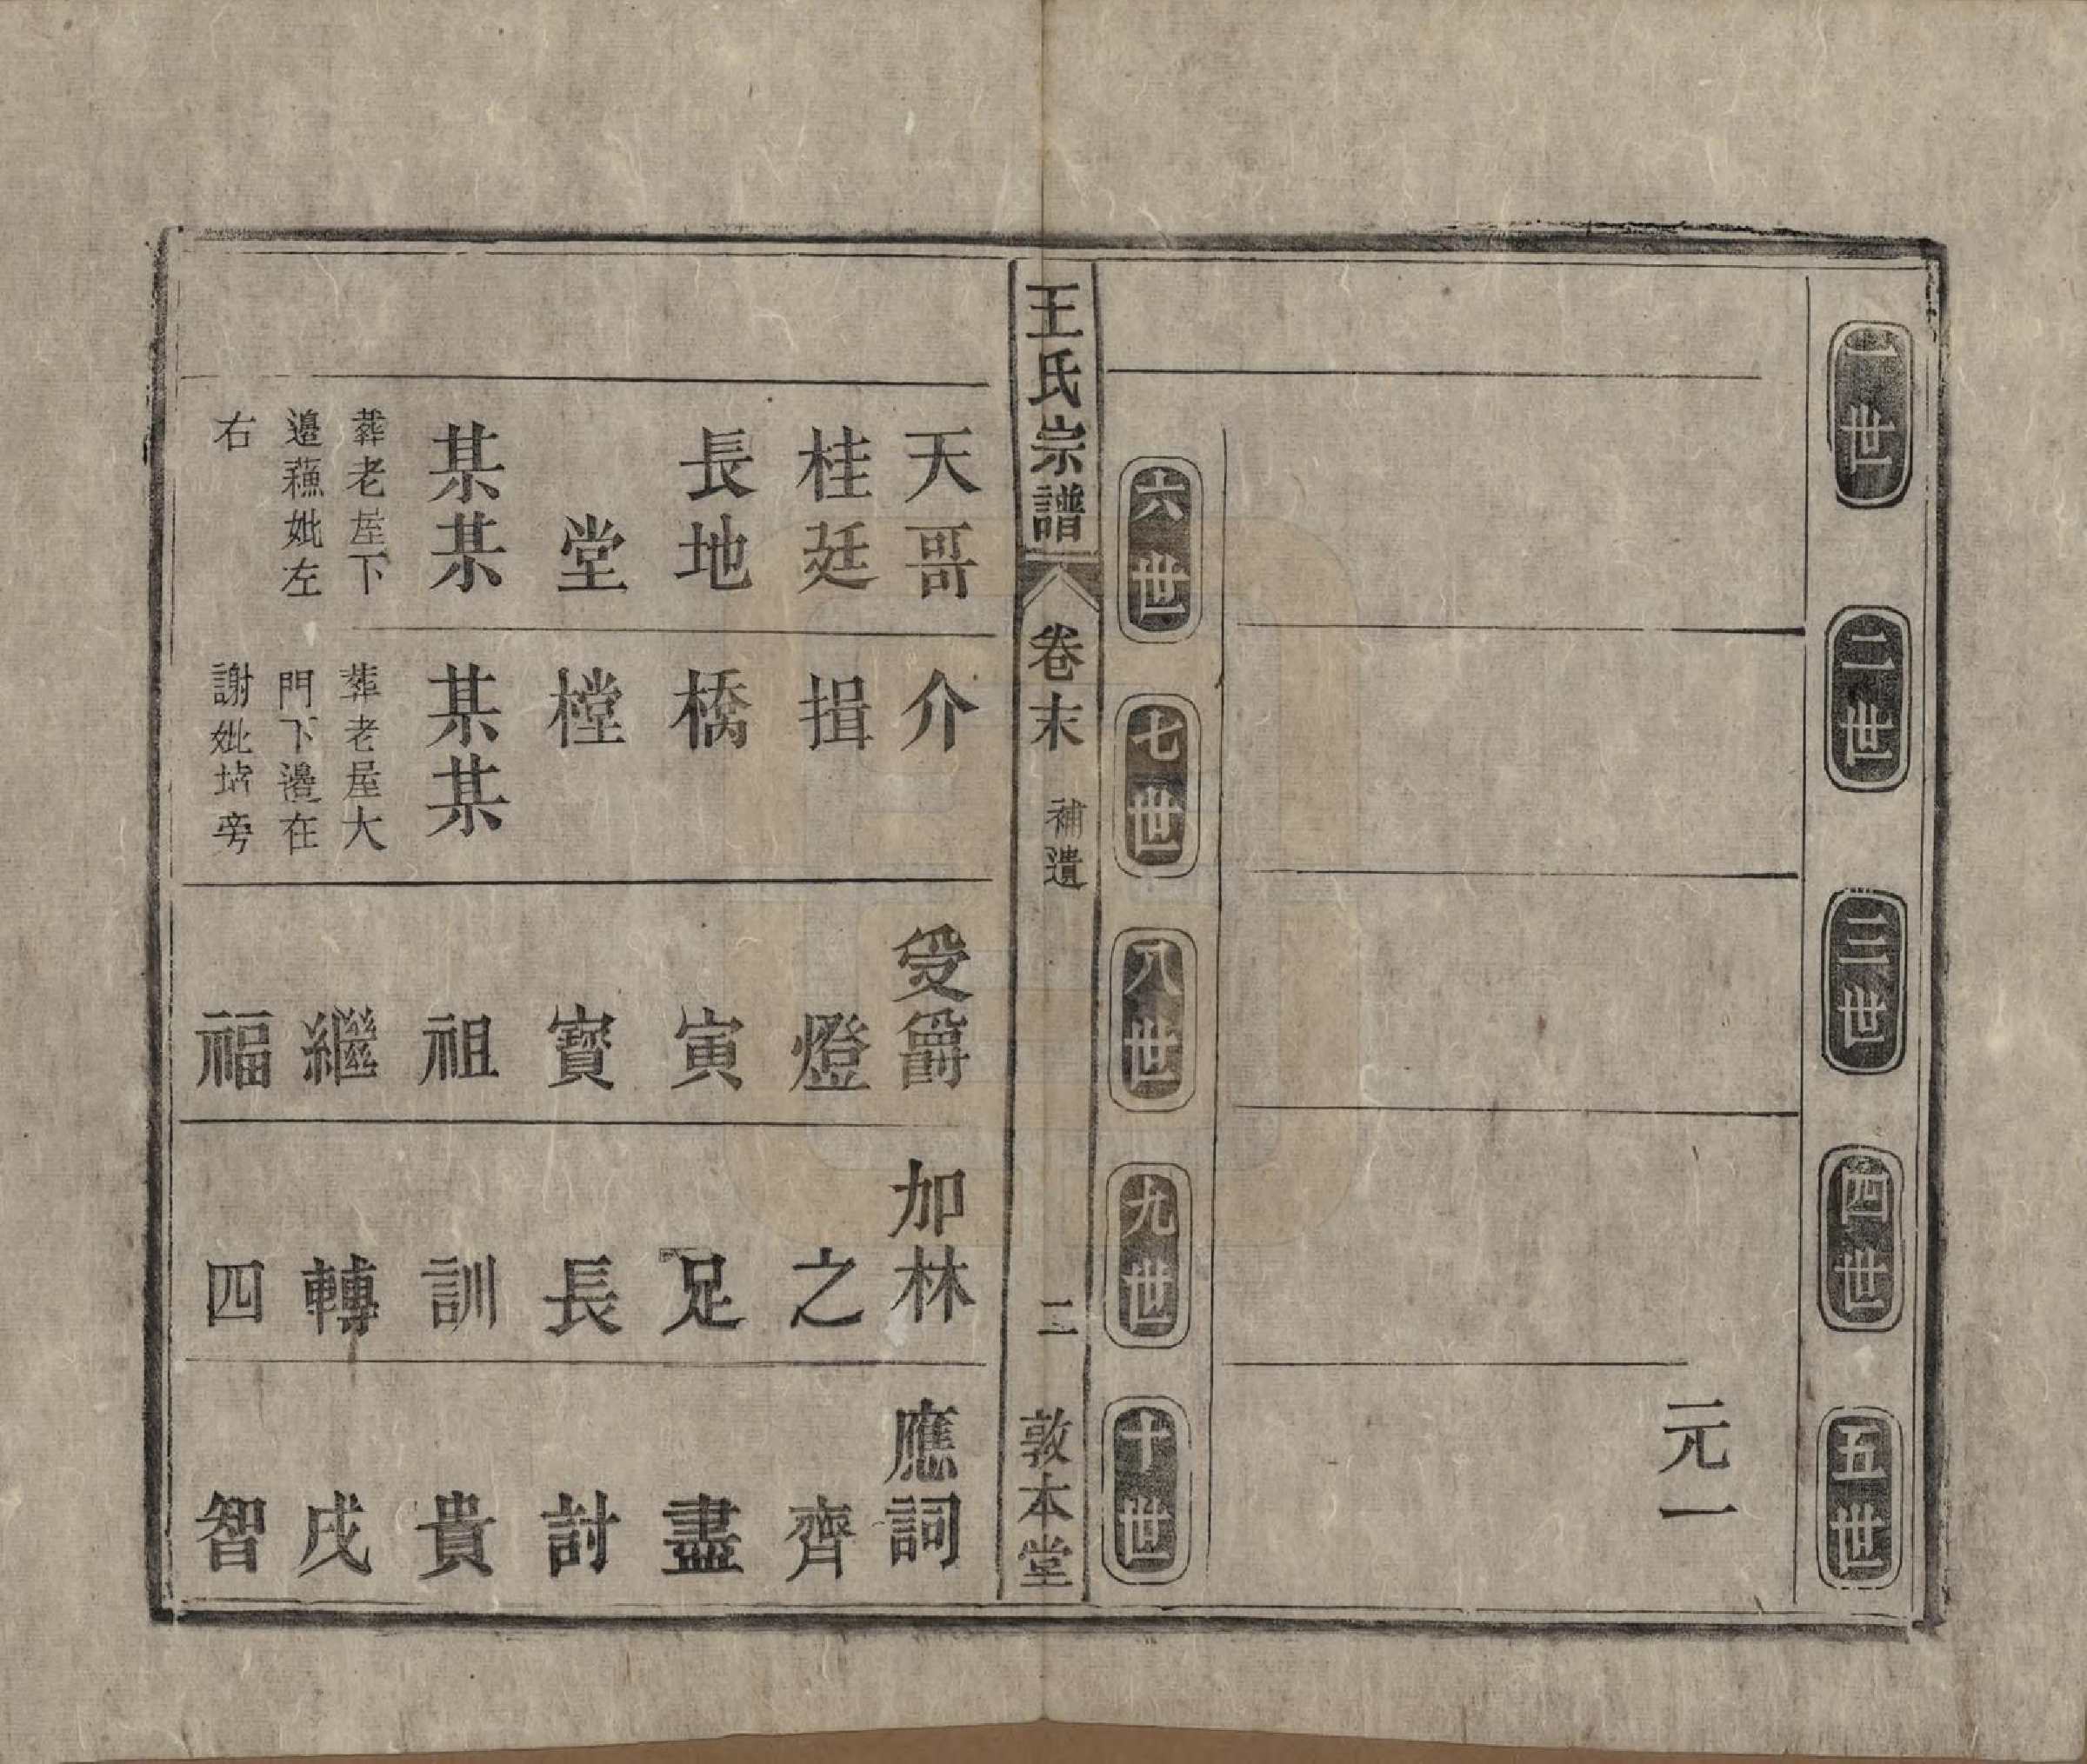 一世
二世
三世
四世
五世
元一
六世
七世
八世
九世
十世
王氏宗譜
卷末
補遺
二
敦本堂
天哥
介
受爵
加林
應詞
桂廷
揖
燈
之
齊
長地
橋
寅
足
盡
堂
樘
寶
長
討
某某
某某
祖
訓
貴
葬老屋下
邉蘓妣左
右
葬老屋大
門下邉在
謝妣坫旁
繼
轉
戌
福
四
智